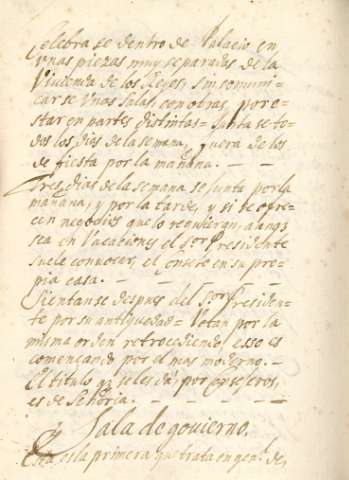 Celebra se dentro de Palacio en
Unas piezas muy separadas de la
Vivienda de los Reyes, sin comuni=
carse Unas Salas, con otras, por e=
star en partes distintas= Junta se to=
dos los dias de la semana, fuera de los
de fiesta por la mañana. — —
Tres dias de la semana se junta por la
mañana, y por la tarde, y si se ofre=
cen negocios que lo requieran, aunq
sea en Vacaciones el Sor Presidente
suele convocar, el Consejo en su pro=
pia casa. — —
Sientanse despues del Sor Presiden=
te por su antiguedad= Votan por la
misma orden retrocediendo, esso es
començando por el mas moderno. —
El titulo q se les da, por Consejeros,
es de Señoria. — —
Sala de govierno.
Esta es la primera que trata en genl. de,